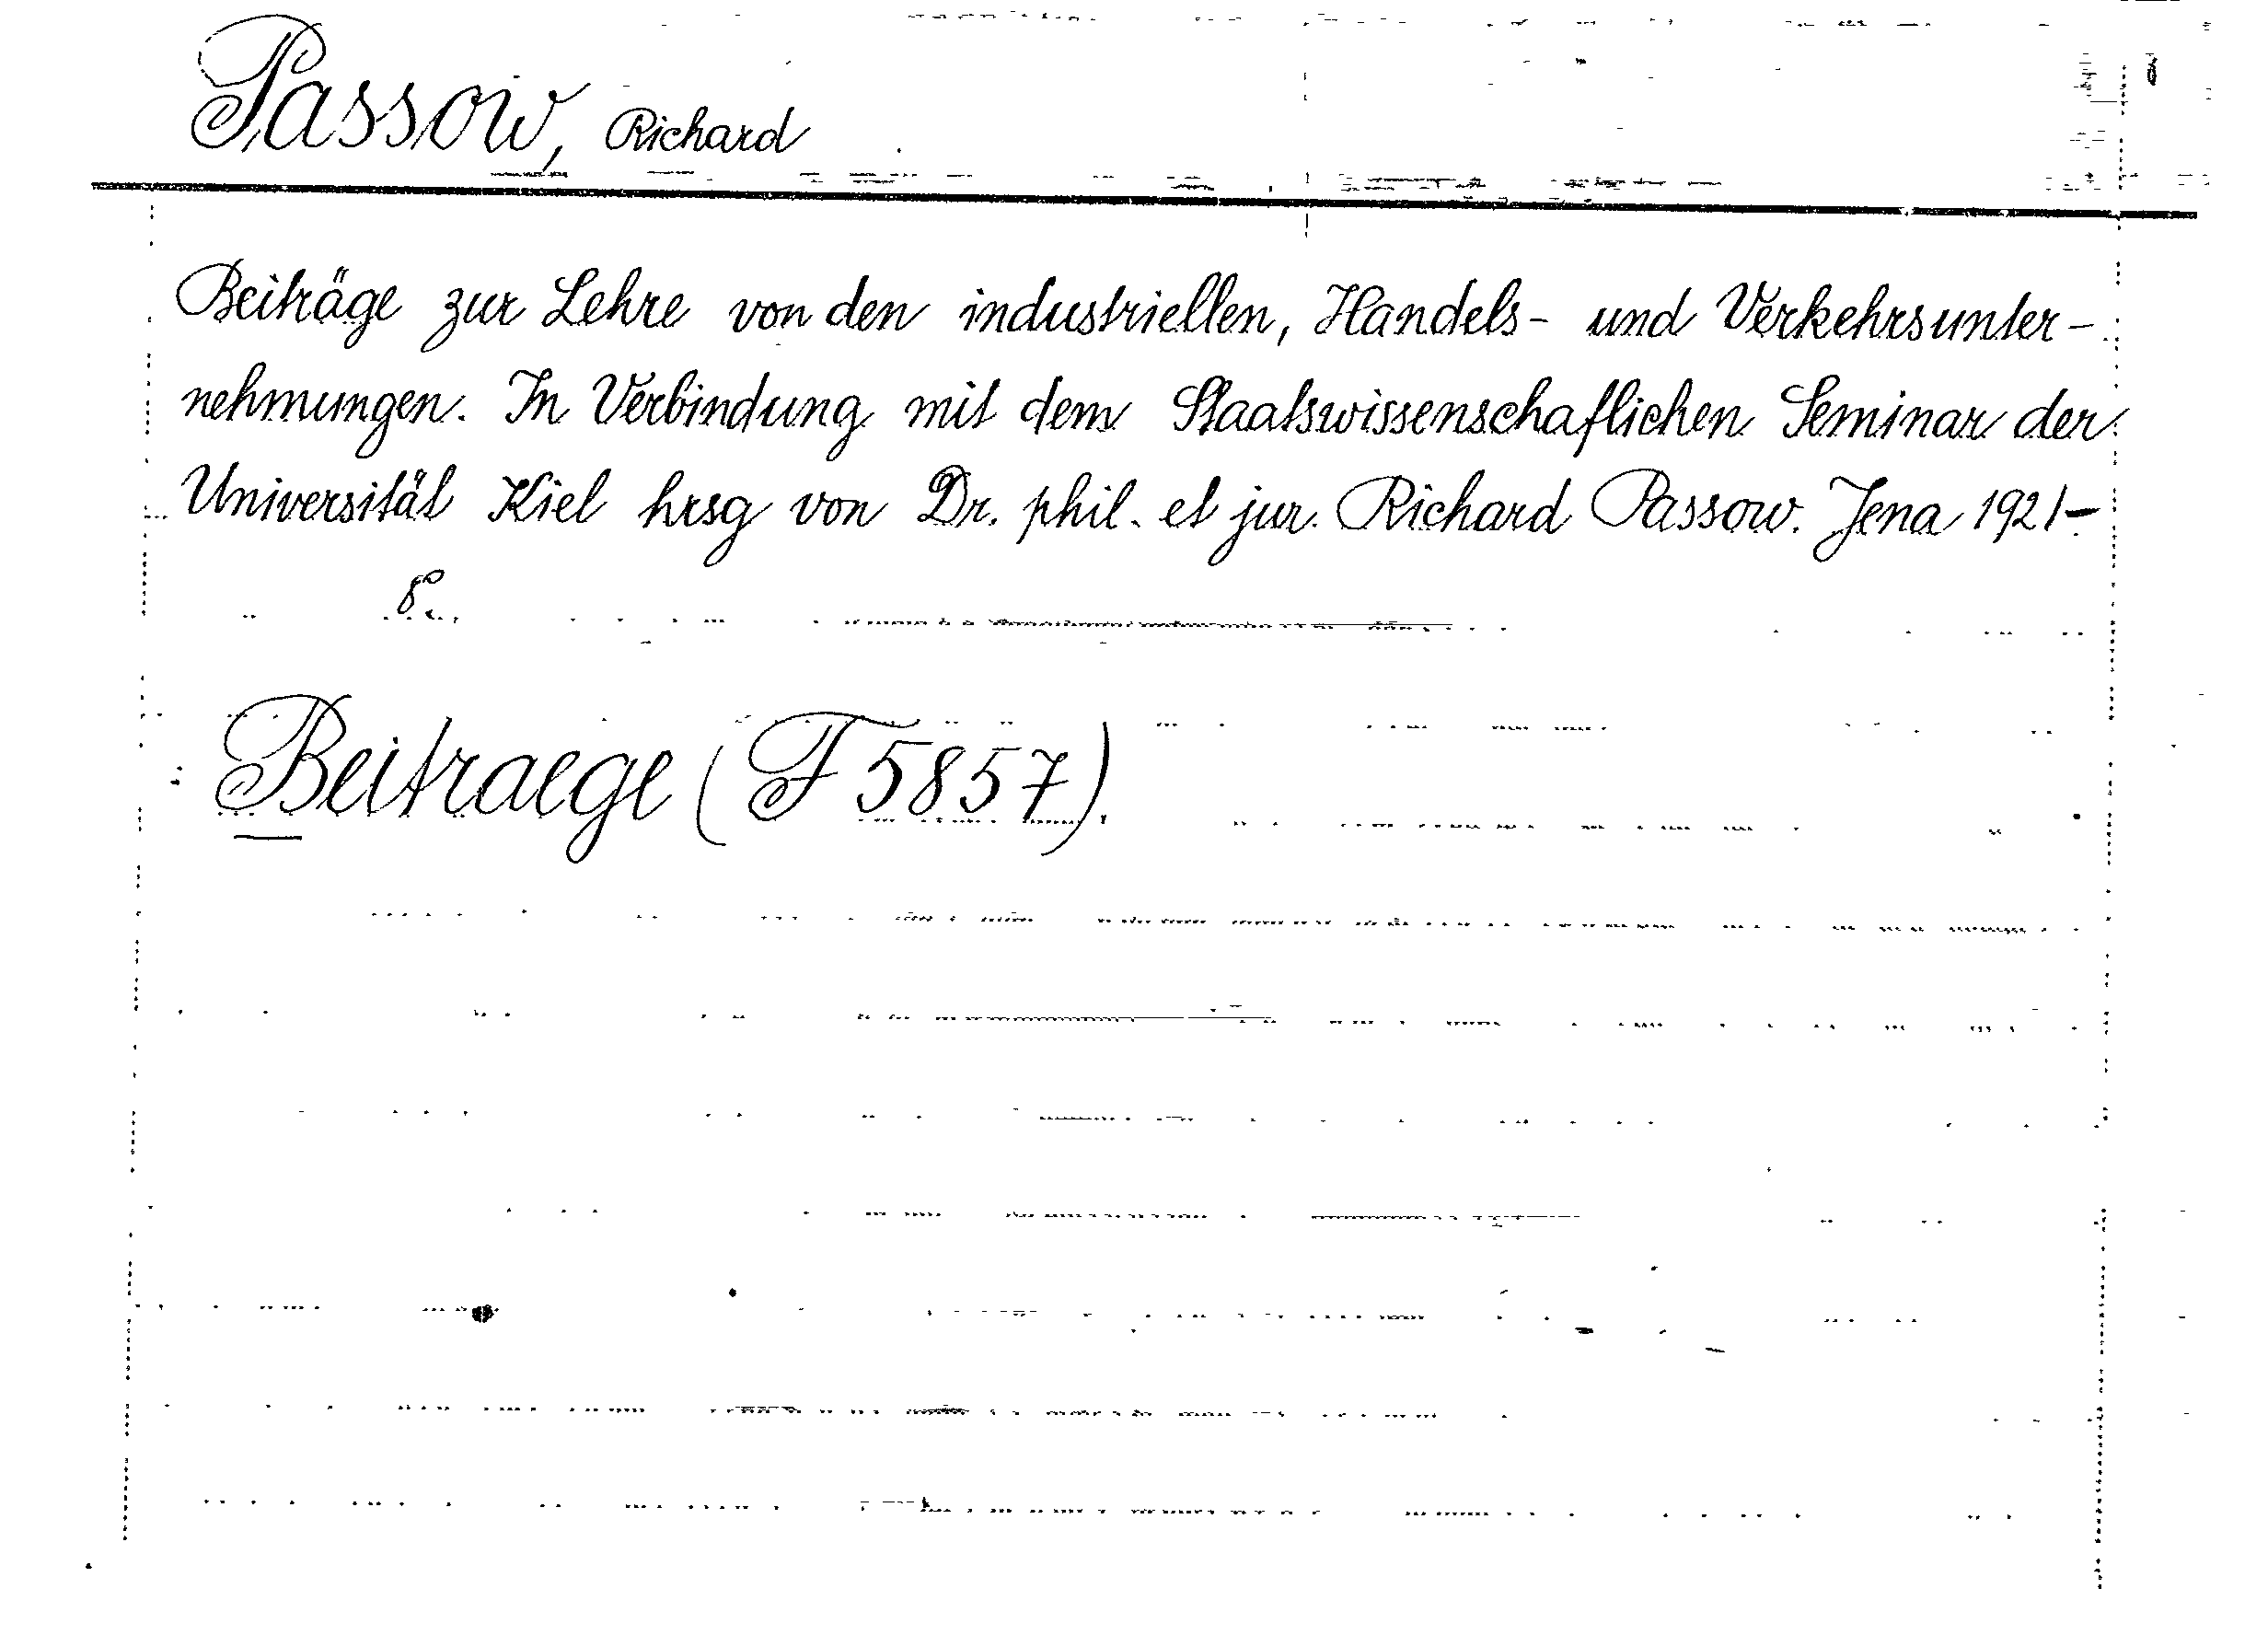 Passow, Richard
Beiträge zur Lehre von den industriellen, Handels- und Verkehrsunter-
nehmungen. In Verbindung mit dem Staatswissenschaftlichen Seminar der
Universität Kiel hrsg von Dr. phil. et jur. Richard Passow. Jena 1921-
8°.
Beitraege (F 5857).